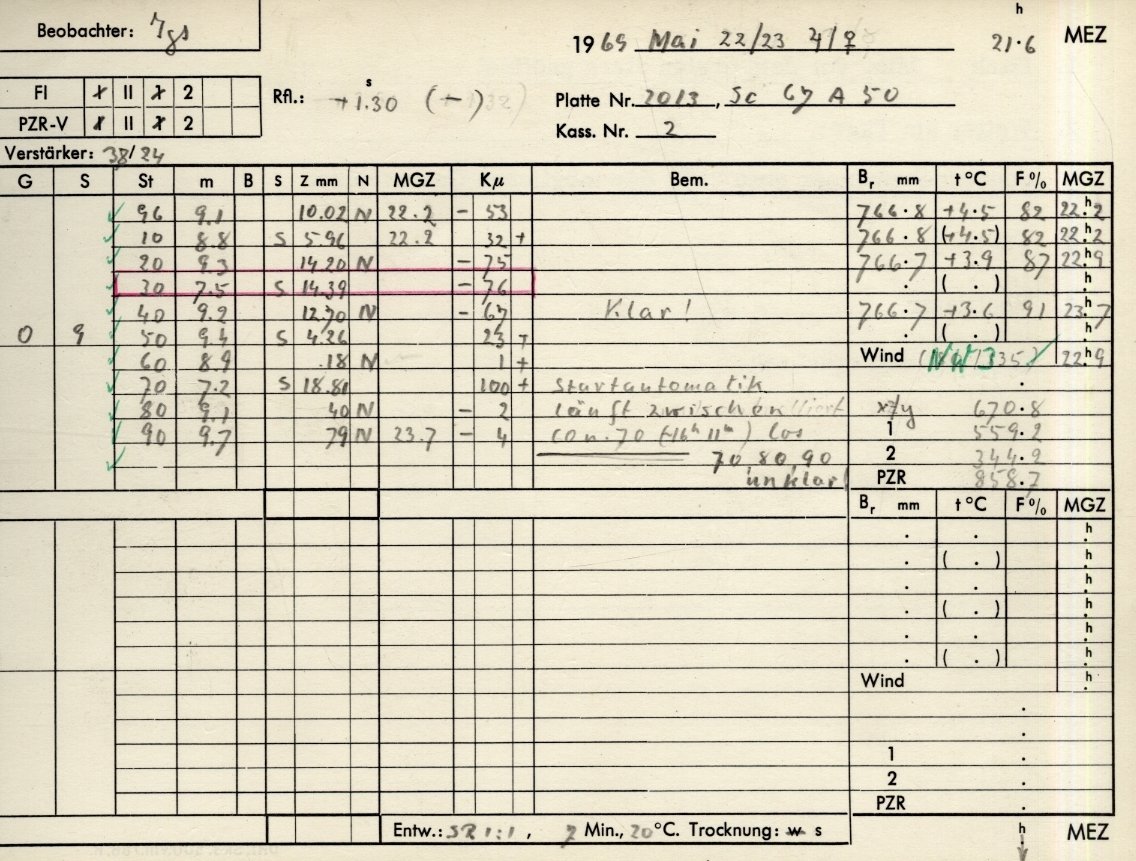 h
Beobachter:
1969 Mai 22/23 4/♀ 21.6 MEZ
FI I II 1 2
Rfl.: +1.30 s (-)
Platte Nr. 2013, Sc 67 A 50
PZR-V I II 1 2
Kass. Nr. 2
Verstärker: 38/24
G S St m B S Z mm N MGZ Kμ Bem. Br mm t°C F% MGZ
96 9.1 10.02 N 22.2 - 53 766.8 +4.5 82 22.h2
10 8.8 S 5.96 22.2 32 + 766.8 (+4.5) 82 22.h2
20 9.3 14.20 N - 75 766.7 +3.9 87 22.h9
30 7.5 S 14.39 - 76 . ( . ) h.
40 9.2 12.70 N - 67 Klar! 766.7 +3.6 91 23.h7
0 9 50 9.4 S 4.26 23 + . ( . ) h.
60 8.9 .18 N 1 + Wind (NW 3 22h9
70 7.2 S 18.81 100 + Startautomatik .
80 9.1 40 N - 2 läuft zwischen x/y 670.8
90 9.7 79 N 23.7 - 4 con. 70 (-16h 11m) los 1 559.2
70, 80, 90 2 344.2
unklar! PZR 858.7
Br mm t°C F% MGZ
. . h.
. ( . ) h.
. . h.
. ( . ) h.
. . h.
. ( . ) h.
Wind h.
.
.
1 .
2 .
PZR .
Entw.: SR 1:1, 7 Min., 20°C. Trocknung: w s h MEZ